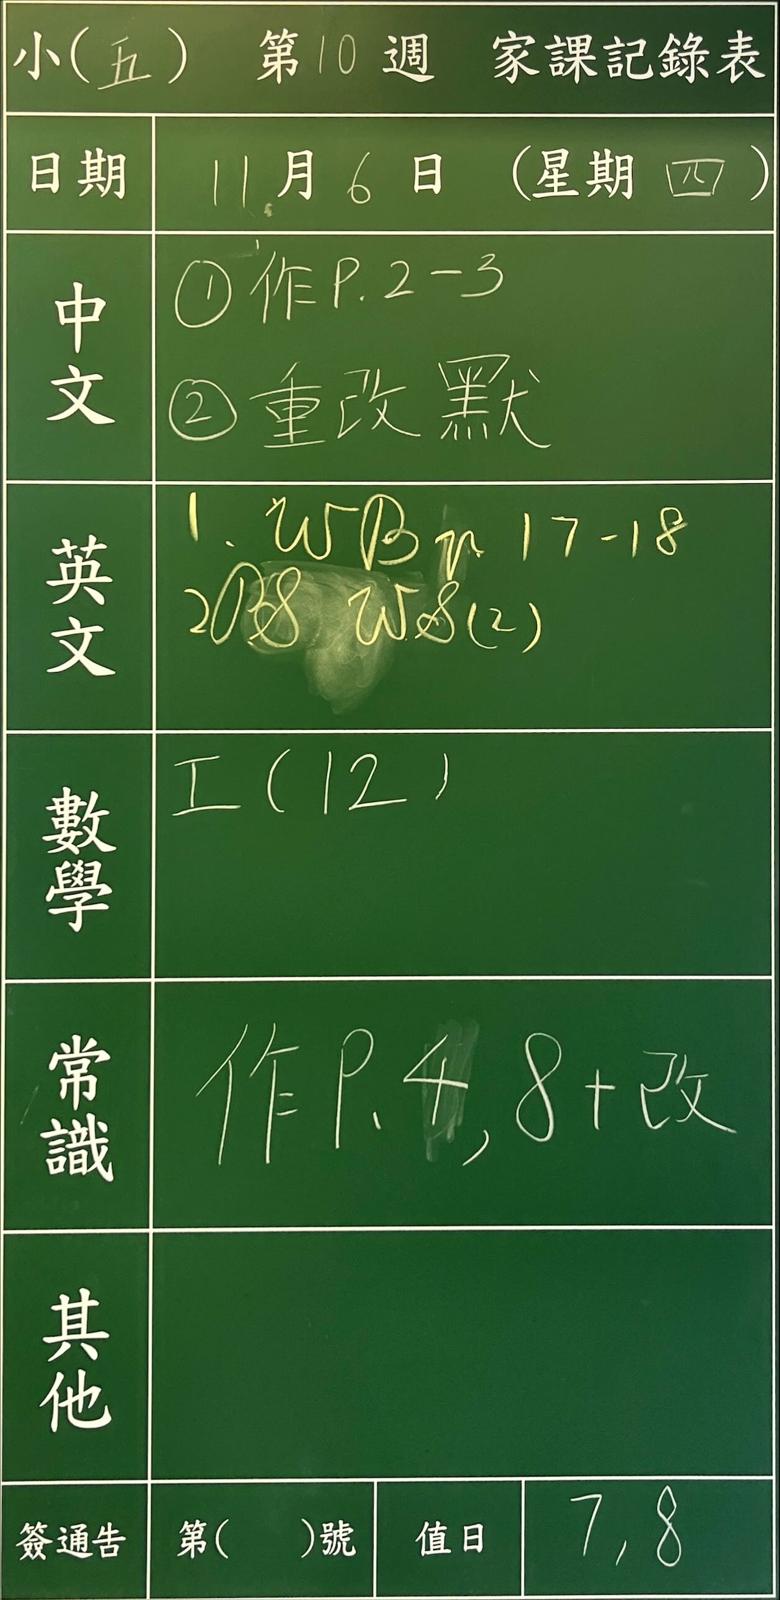 小(五) 第10週 家課記錄表
日期 11月6日 (星期四)
中文
①作P.2-3
②重改默
英文
1. WB p. 17-18
2 W.S(2)
數學
工(12)
常識
作P.4,8+改
其他
簽通告 第( )號 值日 7,8